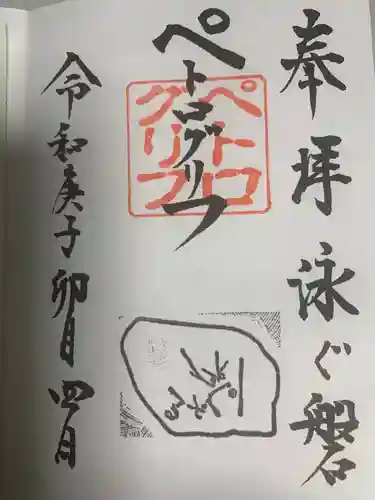 奉拝 泳ぐ磐
ペトログリフ
ペトロ
グリフ
令和庚子卯月四日